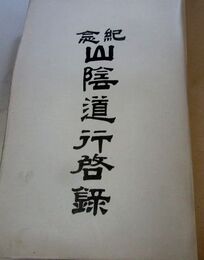 紀念
山陰道行啓録